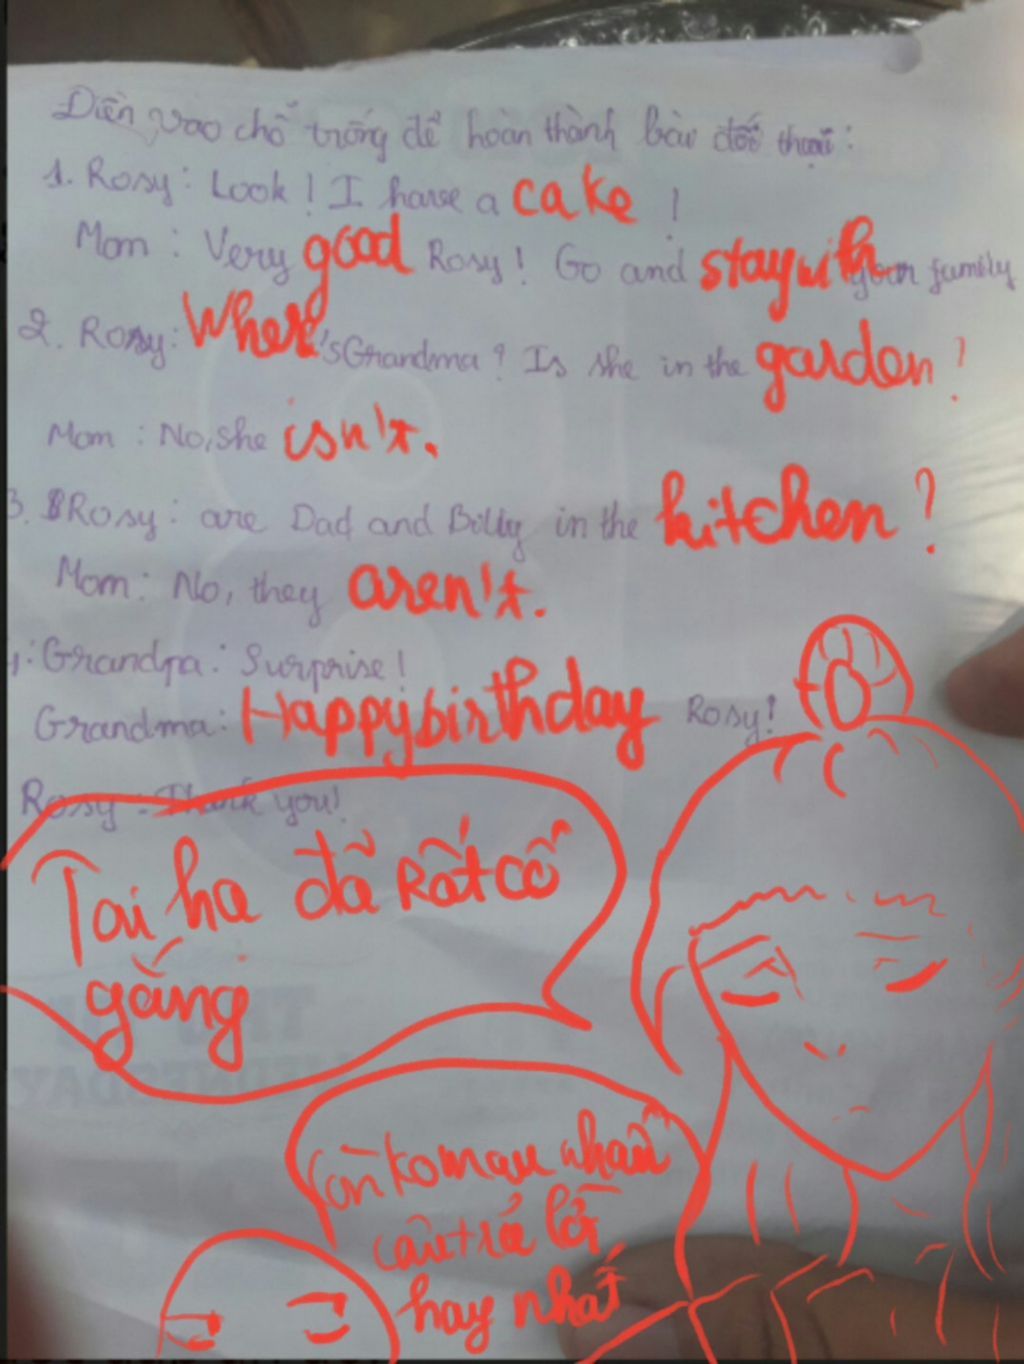 Điền vào chỗ trống để hoàn thành bài đối thoại:
1. Rosy: Look! I have a cake !
Mom : Very good Rosy! Go and stay with your family
2. Rosy: Where's Grandma? Is she in the garden ?
Mom : No, she isn't.
3. Rosy: are Dad and Billy in the kitchen ?
Mom: No, they aren't.
Grandpa: Surprise!
Grandma: Happy birthday Rosy!
Rosy : Thank you!
Tại hạ đã Rất cố
gắng
Còn ko mau nhấn
câu trả lời
hay nhất